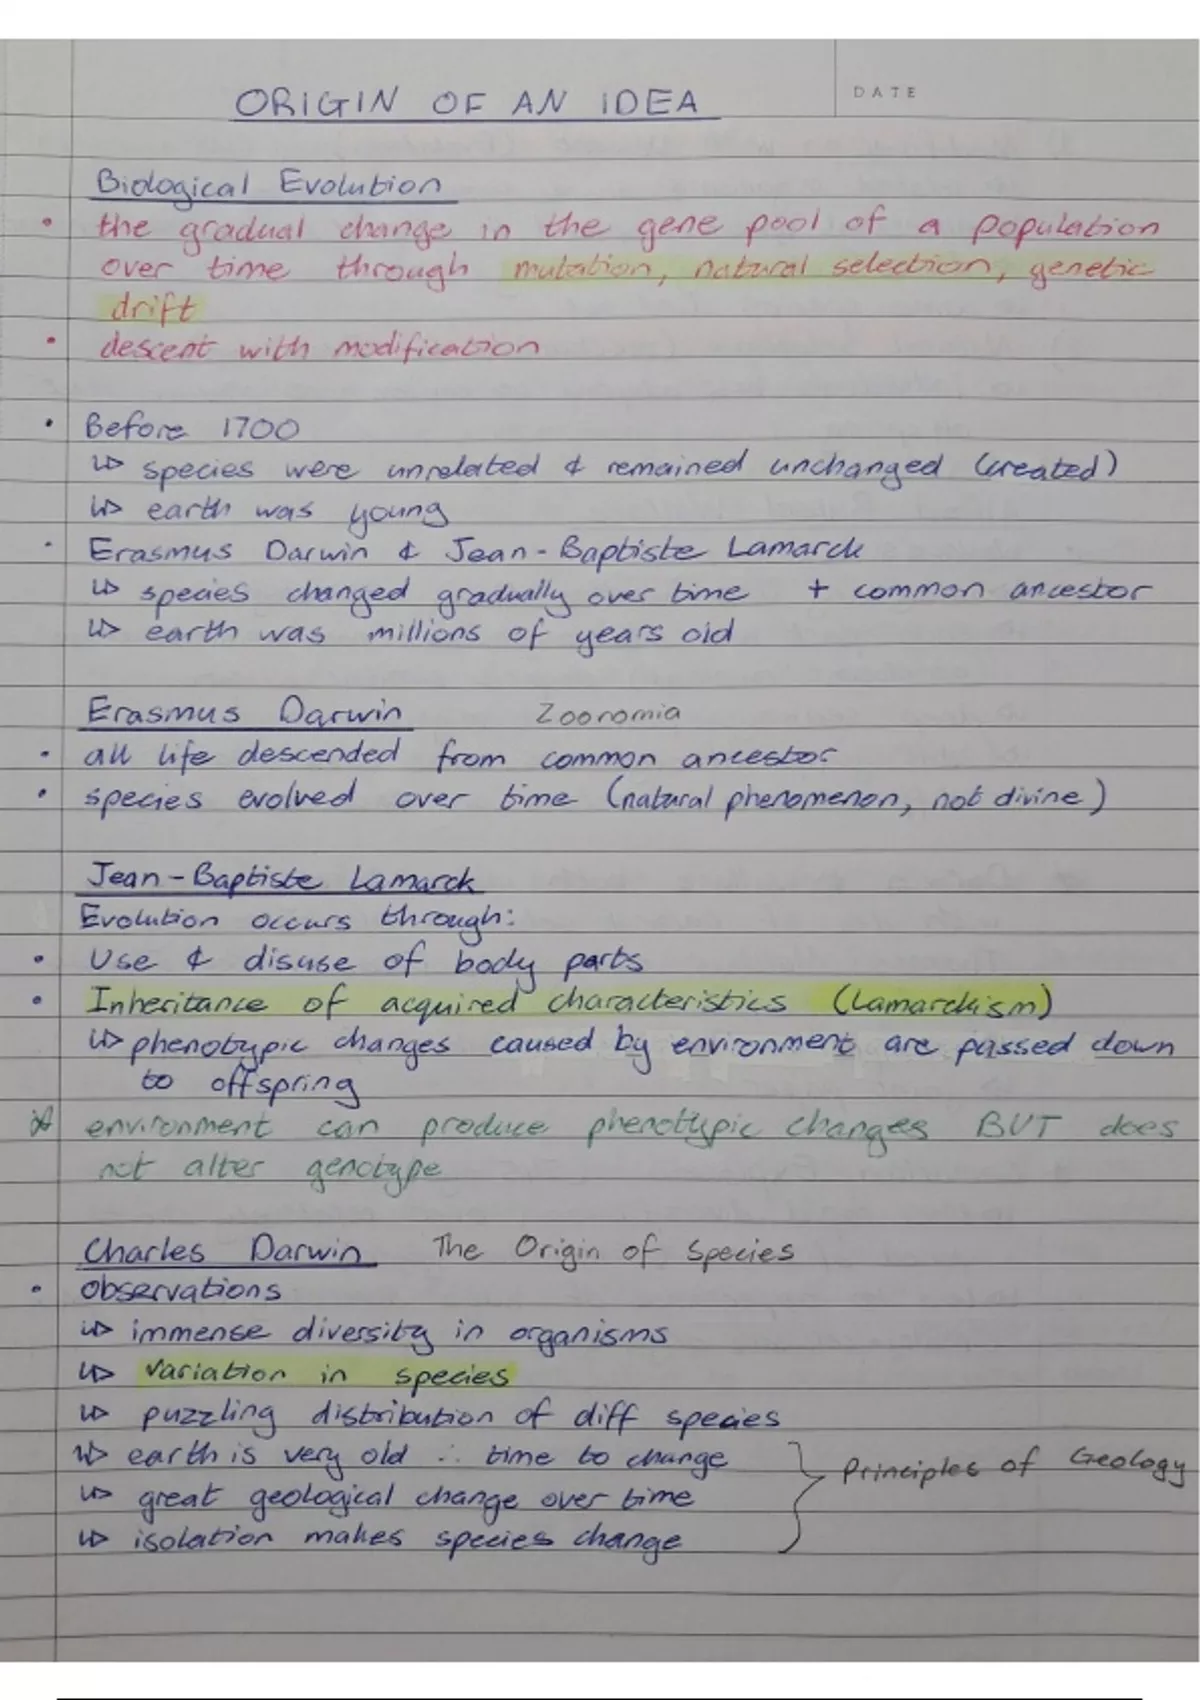 DATE
ORIGIN OF AN IDEA
Biological Evolution
• the gradual change in the gene pool of a population
over time through mutation, natural selection, genetic
drift
• descent with modification
• Before 1700
↳ species were unrelated & remained unchanged (created)
↳ earth was young
• Erasmus Darwin & Jean-Baptiste Lamarck
↳ species changed gradually over time + common ancestor
↳ earth was millions of years old
Erasmus Darwin Zoonomia
• all life descended from common ancestor
• species evolved over time (natural phenomenon, not divine)
Jean-Baptiste Lamarck
Evolution occurs through:
• Use & disuse of body parts
• Inheritance of acquired characteristics (Lamarckism)
↳ phenotypic changes caused by environment are passed down
to offspring
* environment can produce phenotypic changes BUT does
not alter genotype
Charles Darwin The Origin of Species
• Observations
↳ immense diversity in organisms
↳ variation in species
↳ puzzling distribution of diff species
↳ earth is very old ∴ time to change
Principles of Geology
↳ great geological change over time
↳ isolation makes species change